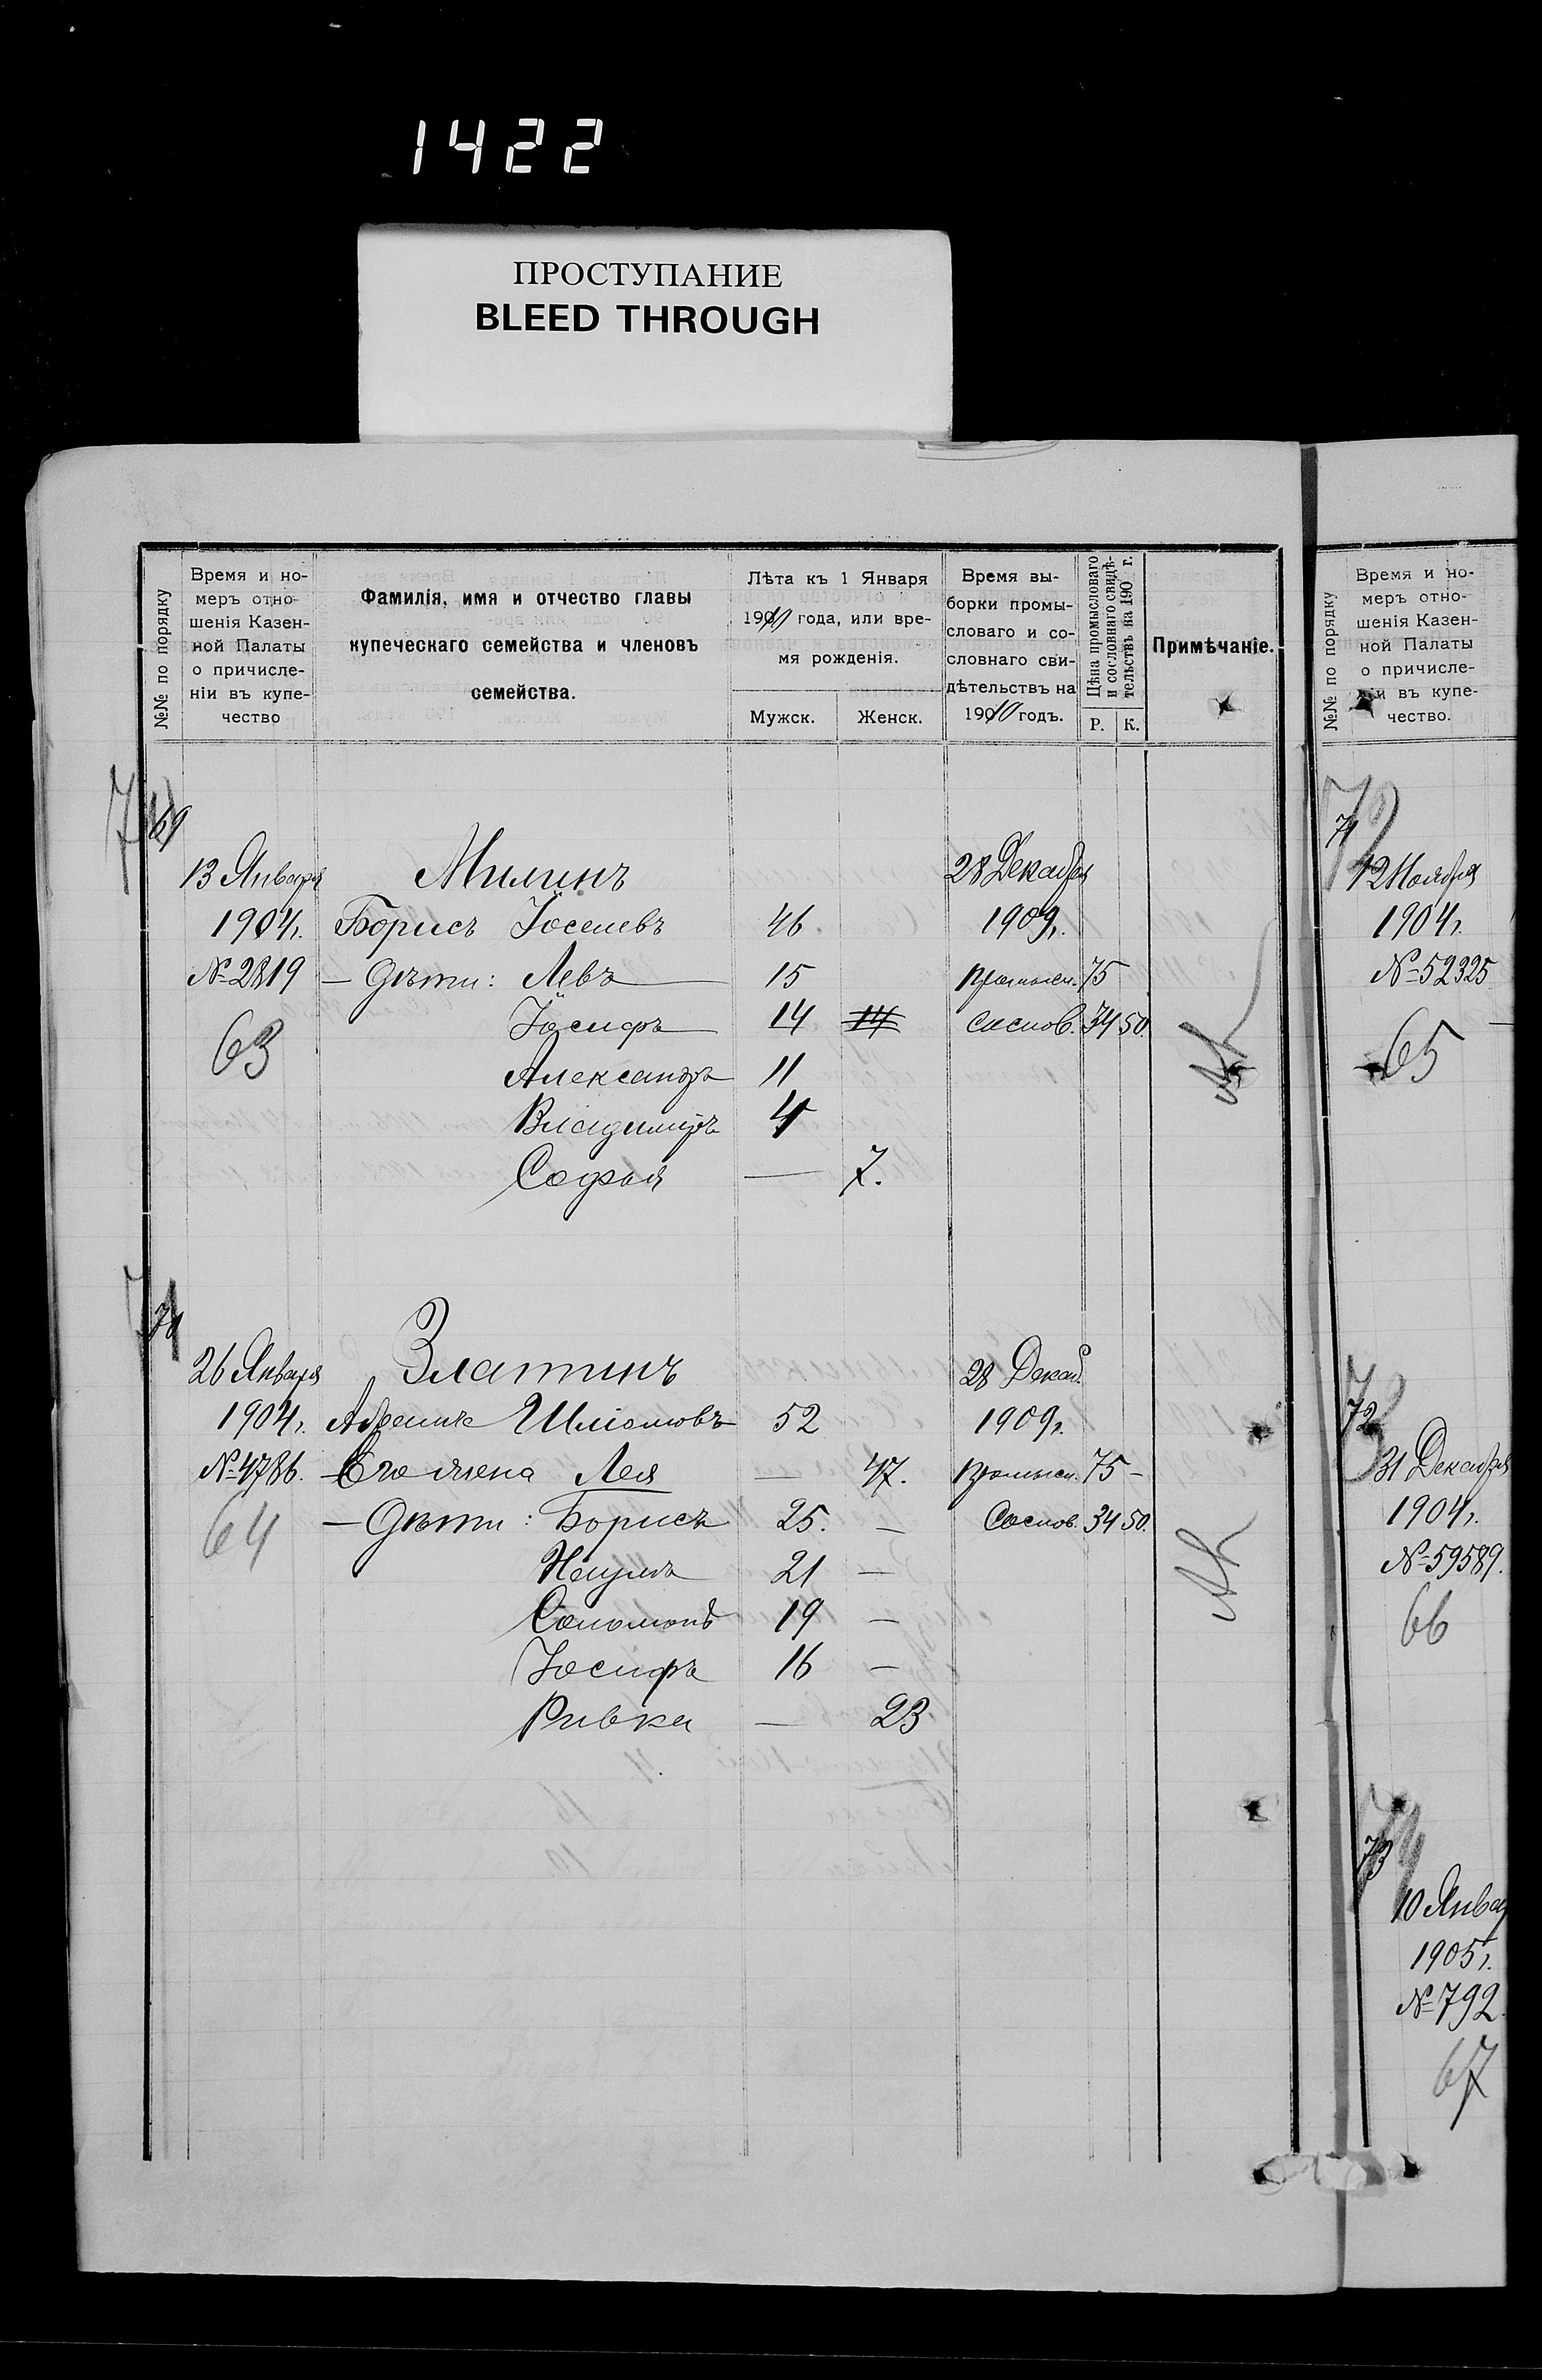 1422
ПРОСТУПАНИЕ
BLEED THROUGH
№№ по порядку
Время и но-
меръ отно-
шенія Казен-
ной Палаты
о причисле-
ніи въ купе-
чество
Фамилія, имя и отчество главы
купеческаго семейства и членовъ
семейства.
Лѣта къ 1 Января
1910 года, или вре-
мя рожденія.
Мужск. Женск.
Время вы-
борки промы-
словаго и со-
словнаго сви-
дѣтельствъ на
1910 годъ.
Цѣна промысловаго
и сословнаго свидѣ-
тельствъ на 190 г.
Р. К.
Примѣчаніе.
69
13 Января Милинъ 28 Декабря
1904 г. Борисъ Іоселевъ 46. 1909 г.
№ 2819 — Дѣти: Левъ 15 Промысл. 75
Іосифъ 14 14 Сослов. 34 50.
63
Александръ 11
Владимиръ 4
Софья — 7.
26 Января Златинъ 28 Декаб.
1904 г. Шліомовъ 52 1909 г.
№ 4786. — Его жена Лея — 47. Промысл. 75 —
64 — Дѣти: Борисъ 25. — Сослов. 34 50.
21 —
Соломонъ 19 —
Іосифъ 16 —
Ривка — 23
№№ по порядку
Время и но-
меръ отно-
шенія Казен-
ной Палаты
о причисле-
ніи въ купе-
чество.
71
12 Ноября
1904 г.
№ 52325
65
72
31 Декабря
1904 г.
№ 59589.
66
73
10 Январ
1905 г.
№ 792.
67